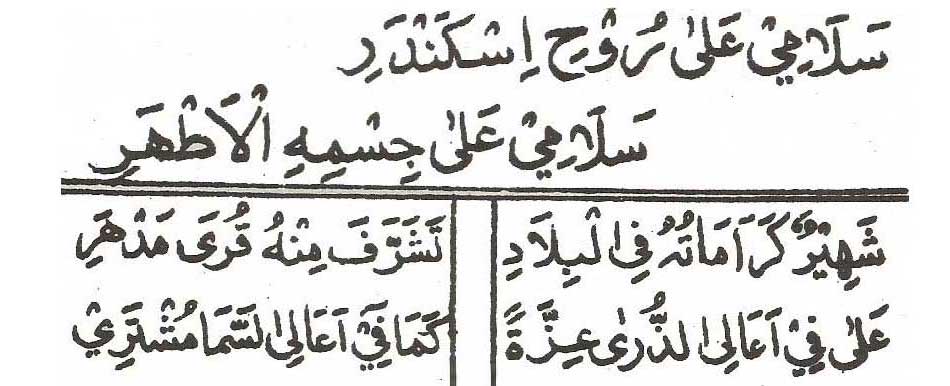 سَلَامِيْ عَلىٰ رُوْحِ اِسْكَنْدَرِ
سَلَامِيْ عَلىٰ جِسْمِهِ الْاَطْهَرِ
شَهِيْرٌ كَرَامَاتُهُ فِى الْبِلَادِ تَشَرَّفَ مِنْهُ قُرَى مَدْهَرِ
عَلىٰ فِيْ اَعَالِى الذُّرىٰ عِزَّةً كَمَا فِيْ اَعَالِى السَّمَا مُشْتَرِيْ